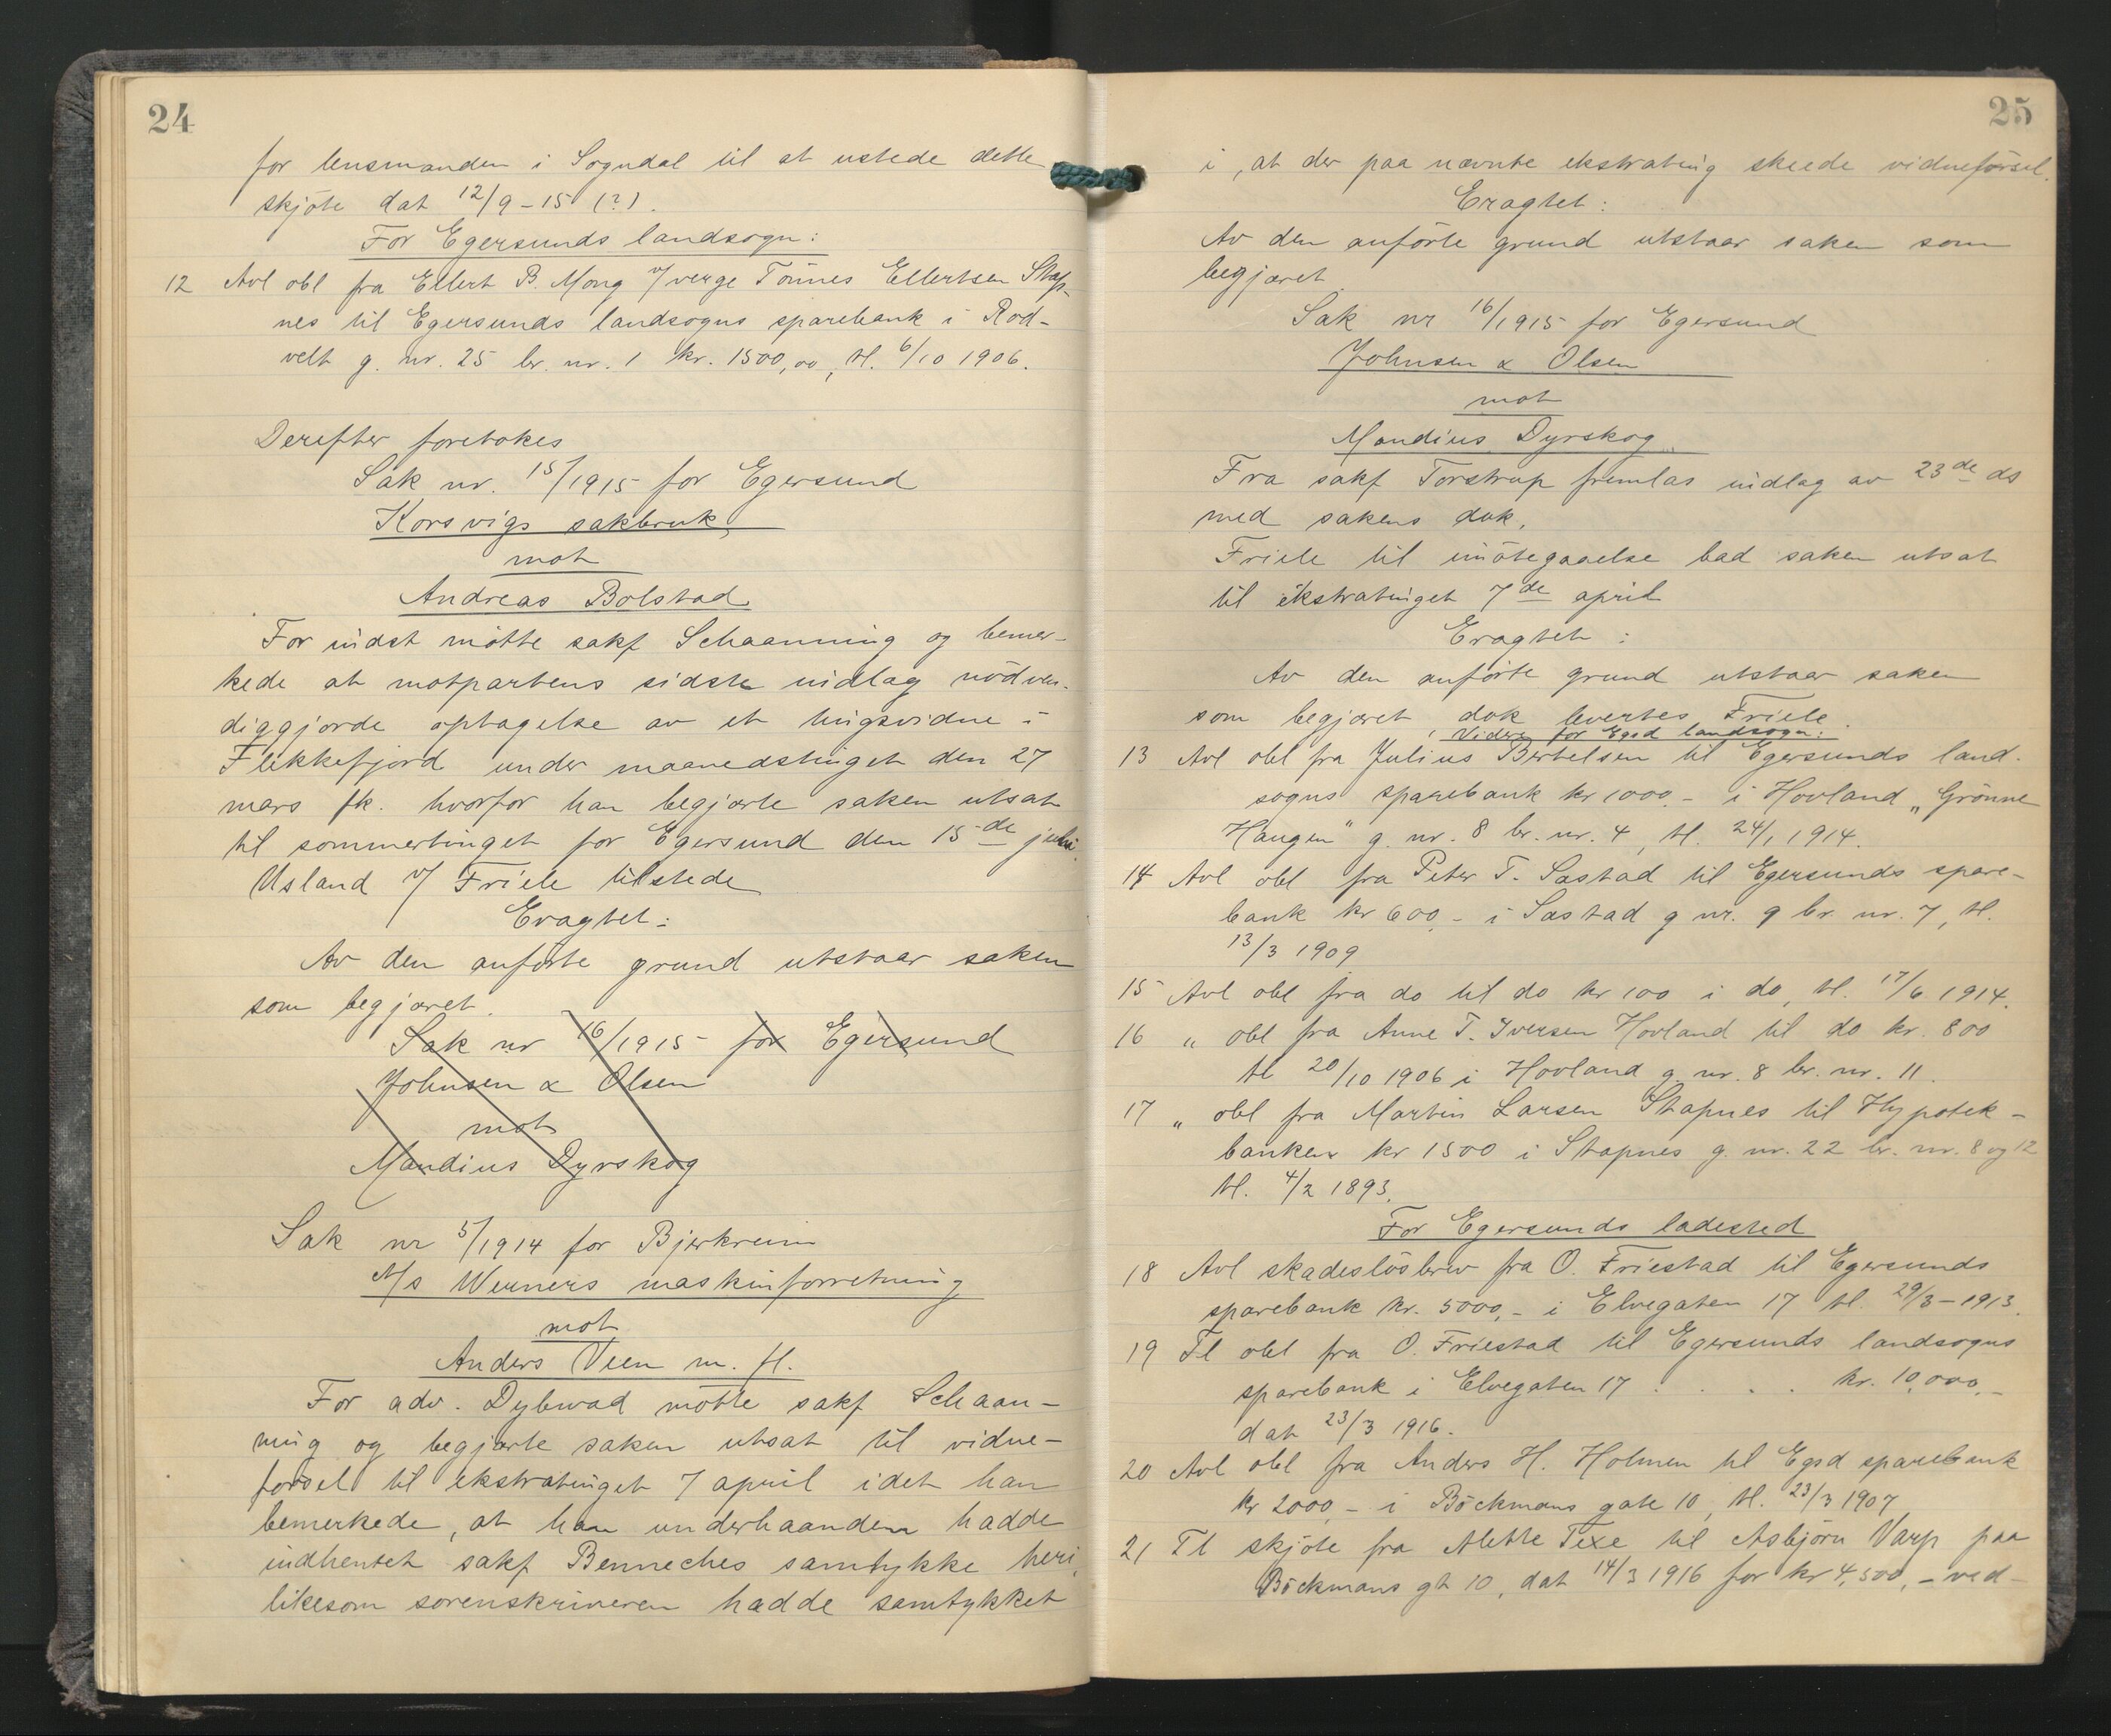 24
for lensmanden i Sogndal til at ustede dette
skjöte dat 12/9-15 (?).
For Egersunds landsogn:
12 Avl obl fra Ellert B. Mong v/ verge Tönnes Ellertsen Stap-
nes til Egersunds landsogns sparebank i Rod-
velt g. nr. 25 br. nr. 1 kr. 1500,00, tl. 6/10 1906.
Derefter foretokes
Sak nr. 15/1915 for Egersund
Korsvigs sakbruk
mot
Andreas Bolstad
For indst mötte sakf Schaanning og bemer-
kede at motpartens sidste indlag nödven-
diggjorde optagelse av et tingsvidne i
Flekkefjord under maanedstinget den 27
mars fk. hvorfor han begjærte saken utsat
til sommertinget for Egersund den 15de juli.
Usland v/ Friele tilstede
Eragtet:
Av den anförte grund utstaar saken
som begjæret.
Sak nr 16/1915 for Egersund
Johnsen & Olsen
mot
Mandius Dyrskog
Sak nr 5/1914 for Bjerkreim
A/s Werners maskinforretning
mot
Anders Veen m. fl.
For adv. Dybwad mötte sakf Schaan-
ning og begjærte saken utsat til vidne-
försel til ekstratinget 7 april idet han
bemerkede, at han underhaanden hadde
indhentet sakf Benneches samtykke heri,
likesom sorenskriveren hadde samtykket
25
i, at der paa nævnte ekstrating skeede vidneförsel.
Eragtet:
Av den anförte grund utstaar saken som
begjæret.
Sak nr 16/1915 for Egersund
Johnsen & Olsen
mot
Mandius Dyrskog
Fra sakf Torstrup fremlas indlag av 23de ds
med sakens dok.
Friele til imötegaaelse bad saken utsat
til ekstratinget 7de april
Eragtet:
Av den anförte grund utstaar saken
som begjæret, dok levertes Friele.
Videre for Egsd landsogn:
13 Avl obl fra Julius Bertelsen til Egersunds land-
sogns sparebank kr 1000,- i Hovland „Grönne
Haugen" g. nr. 8 br. nr. 4, tl. 24/1 1914.
14 Avl obl fra Peter T. Sæstad til Egersunds spare-
bank kr 600,- i Sæstad g nr. 9 br. nr. 7, tl.
13/3 1909
15 Avl obl fra do til do kr 100 i do, tl. 17/6 1914.
16 „ obl fra Anne T. Iversen Hovland til do kr. 800
tl 20/10 1906 i Hovland g. nr. 8 br. nr. 11.
17 „ obl fra Martin Larsen Stapnes til Hypotek-
banken kr 1500 i Stapnes g. nr. 22 br. nr. 8 og 12
tl. 4/2 1893.
For Egersunds ladested
18 Avl skadeslösbrev fra O. Friestad til Egersunds
sparebank kr. 5000,- i Elvegaten 17 tl. 29/3-1913.
19 Tl obl fra O. Friestad til Egersunds landsogns
sparebank i Elvegaten 17 . . . . kr. 10,000,-
dat 23/3 1916.
20 Avl obl fra Anders H. Holmen til Egsd sparebank
kr 2000,- i Böckmans gate 10, tl. 23/3 1907
21 Tl skjöte fra Alette Texe til Asbjörn Varp paa
Böckmans gt 10, dat 14/3 1916 for kr 4,500,- ved-